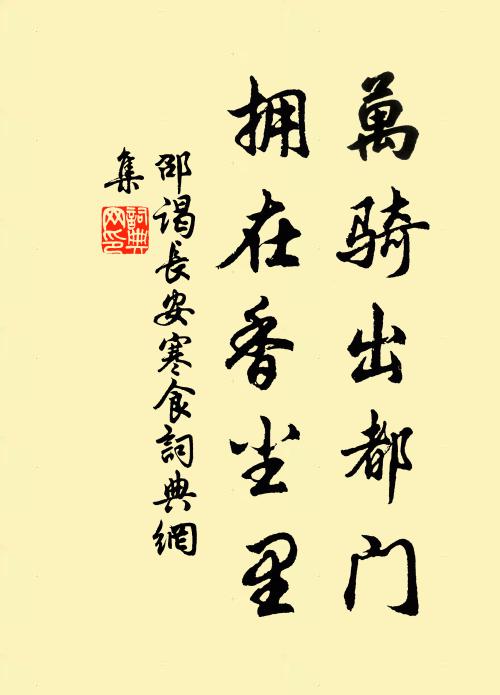 萬骑出都门
拥在香尘里
邵谒長安寒食詞典網
集
詞典网印